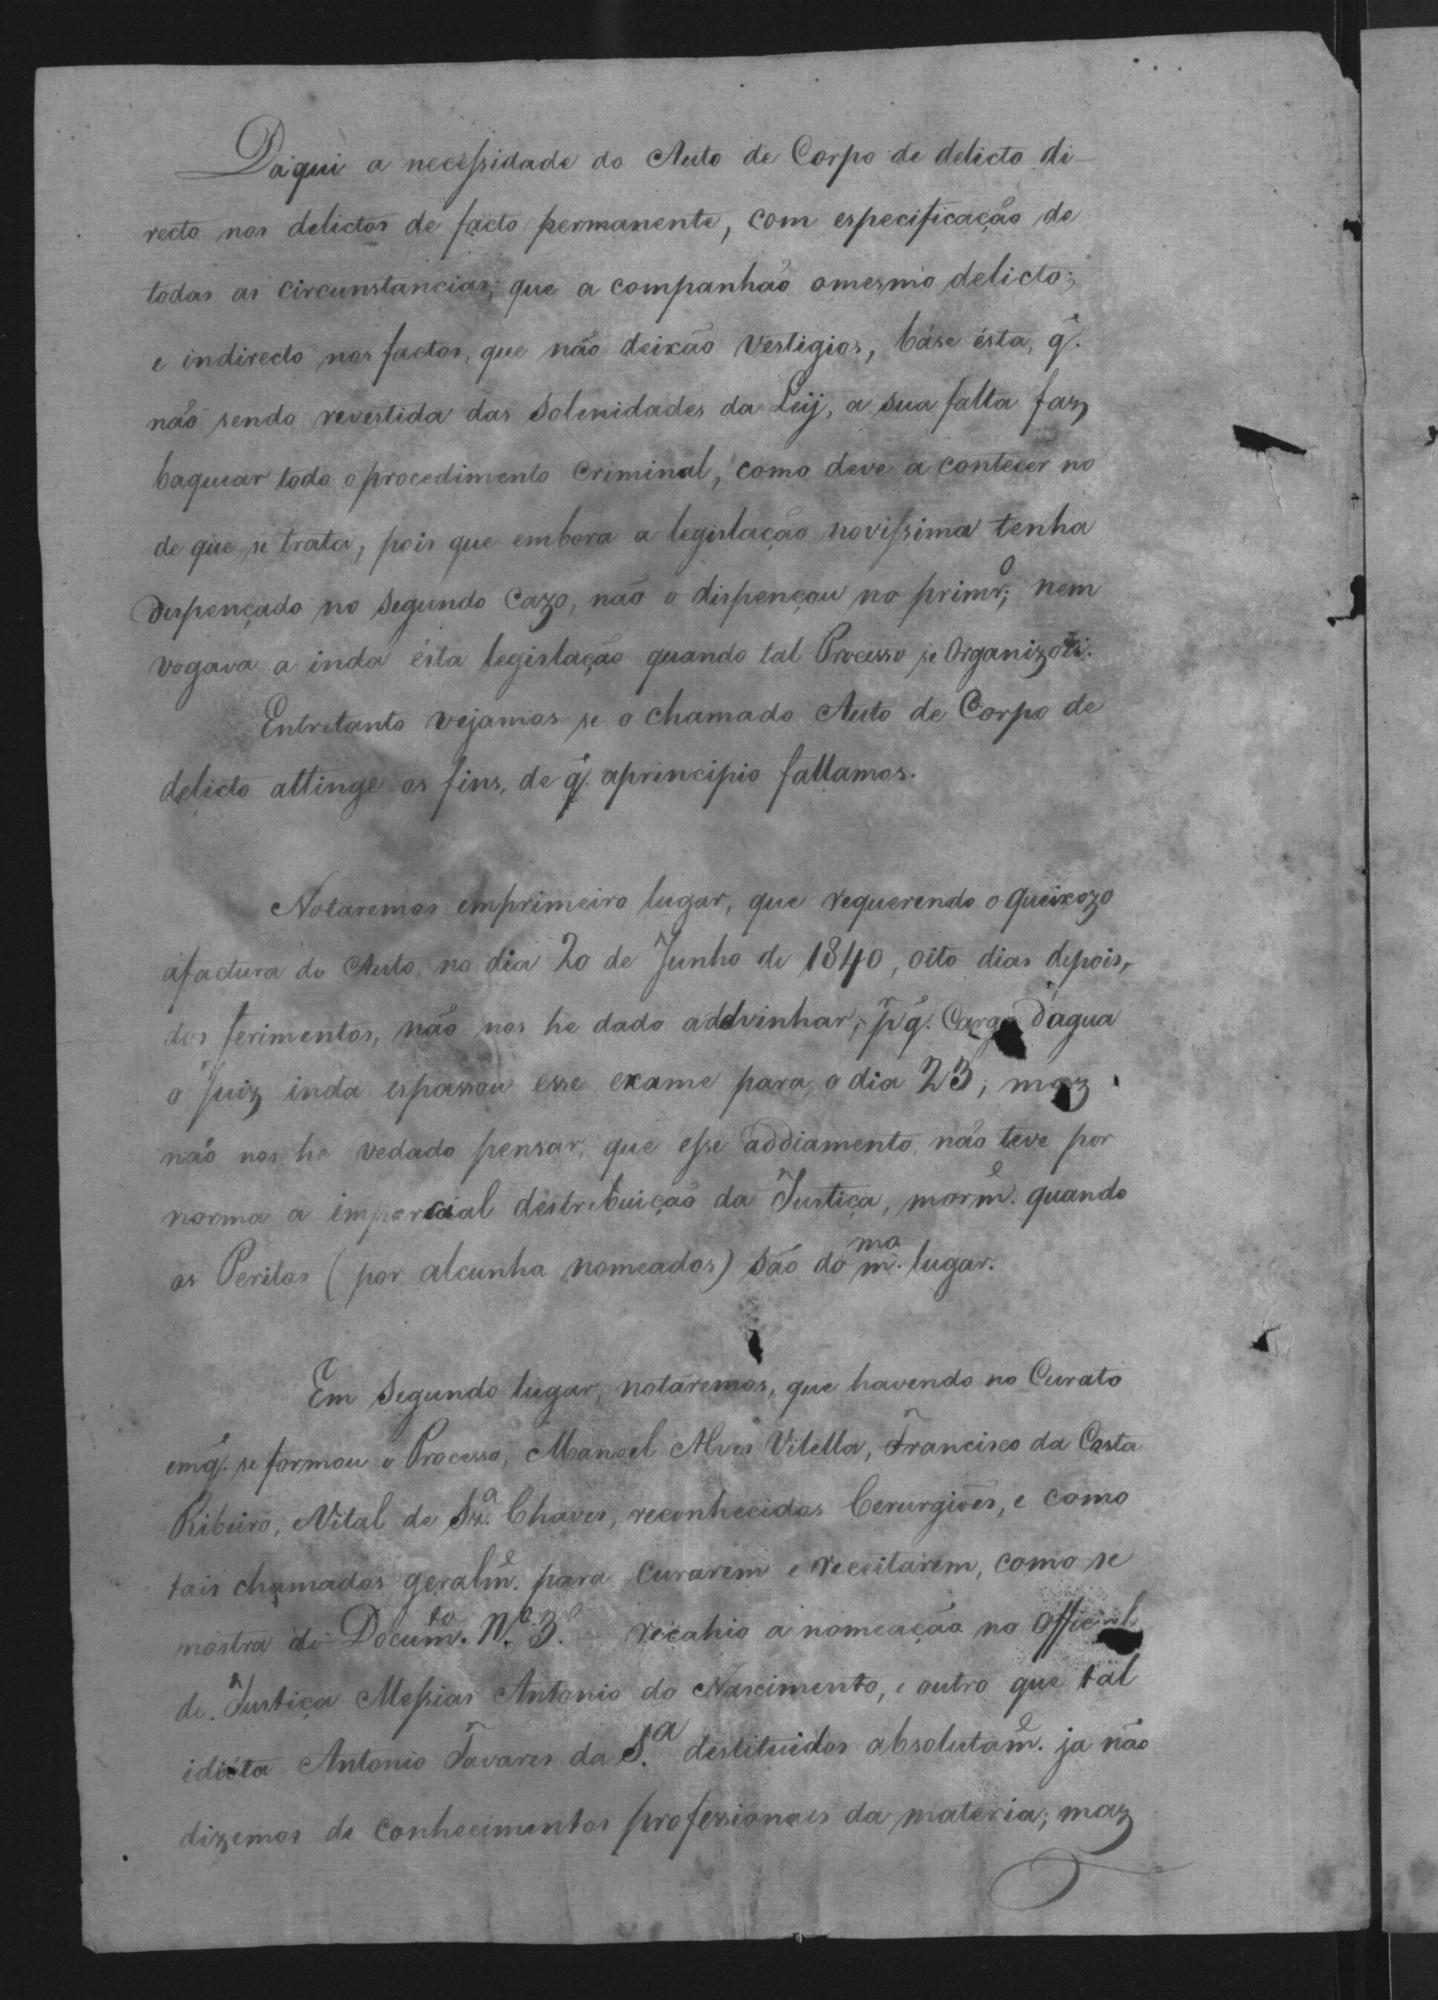 Daqui a necessidade do Auto de Corpo de delicto di-
recto nos delictos de facto permanente, com especificação de
todas as circunstancias, que a companhão omesmo delicto;
e indirecto nos factos, que não deixão vestigios, báse ésta, q̃.
não sendo revestida das Solenidades da Leij, a sua falta faz
baquear todo oprocedimento Criminal, como deve a contecer no
de que se trata, pois que embora a legislação novissima tenha
dispençado no segundo Cazo, não o dispençou no primrº; nem
vogava a inda ésta legislação quando tal Processo se Organizou.
Entretanto vejamos se o chamado Auto de Corpo de
delicto attinge os fins, de q̃. aprincipio fallamos.
Notaremos emprimeiro lugar, que requerendo o queixozo
afactura do Auto, no dia 20 de Junho de 1840, oito dias depois,
dos ferimentos, não nos he dado addvinhar, pr q̃. Carga d'agua
o Juiz inda espassou esse exame para o dia 23, maz
não nos he vedado pensar, que esse addiamento, não teve por
norma a imparcial destribuição da Justiça, mormẽ. quando
os Peritos (por alcunha nomeados) são do m.mo lugar.
Em Segundo lugar, notaremos, que havendo no Curato
emq̃. se formou o Processo, Manoel Alves Vilella, Francisco da Costa
Ribeiro, Vital de Sz.ª Chaves, reconhecidos Cerurgiões, e como
tais chamados geralmẽ. para curarem e receitarem, como se
mostra do Docum.to N.º 3º. - recahio a nomeação no Official
de Justiça Messias Antonio do Nascimento, e outro que tal
idióta Antonio Tavares da S.ª destituidos absolutamẽ. ja não
dizemos de conhecimentos professionaes da materia; maz